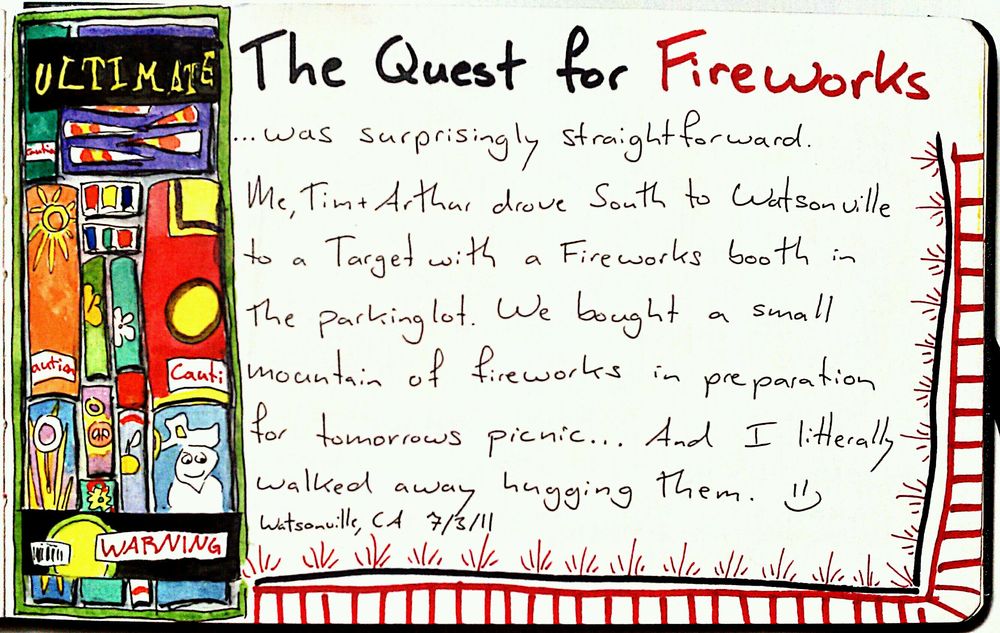 ULTIMATE
The Quest for Fireworks
...was surprisingly straightforward.
Me, Tim + Arthur drove South to Watsonville
to a Target with a Fireworks booth in
the parking lot. We bought a small
mountain of fireworks in preparation
for tomorrows picnic... And I litterally
walked away hugging them.
Watsonville, CA 7/3/11
Cautio
aution
Cauti
WARNING